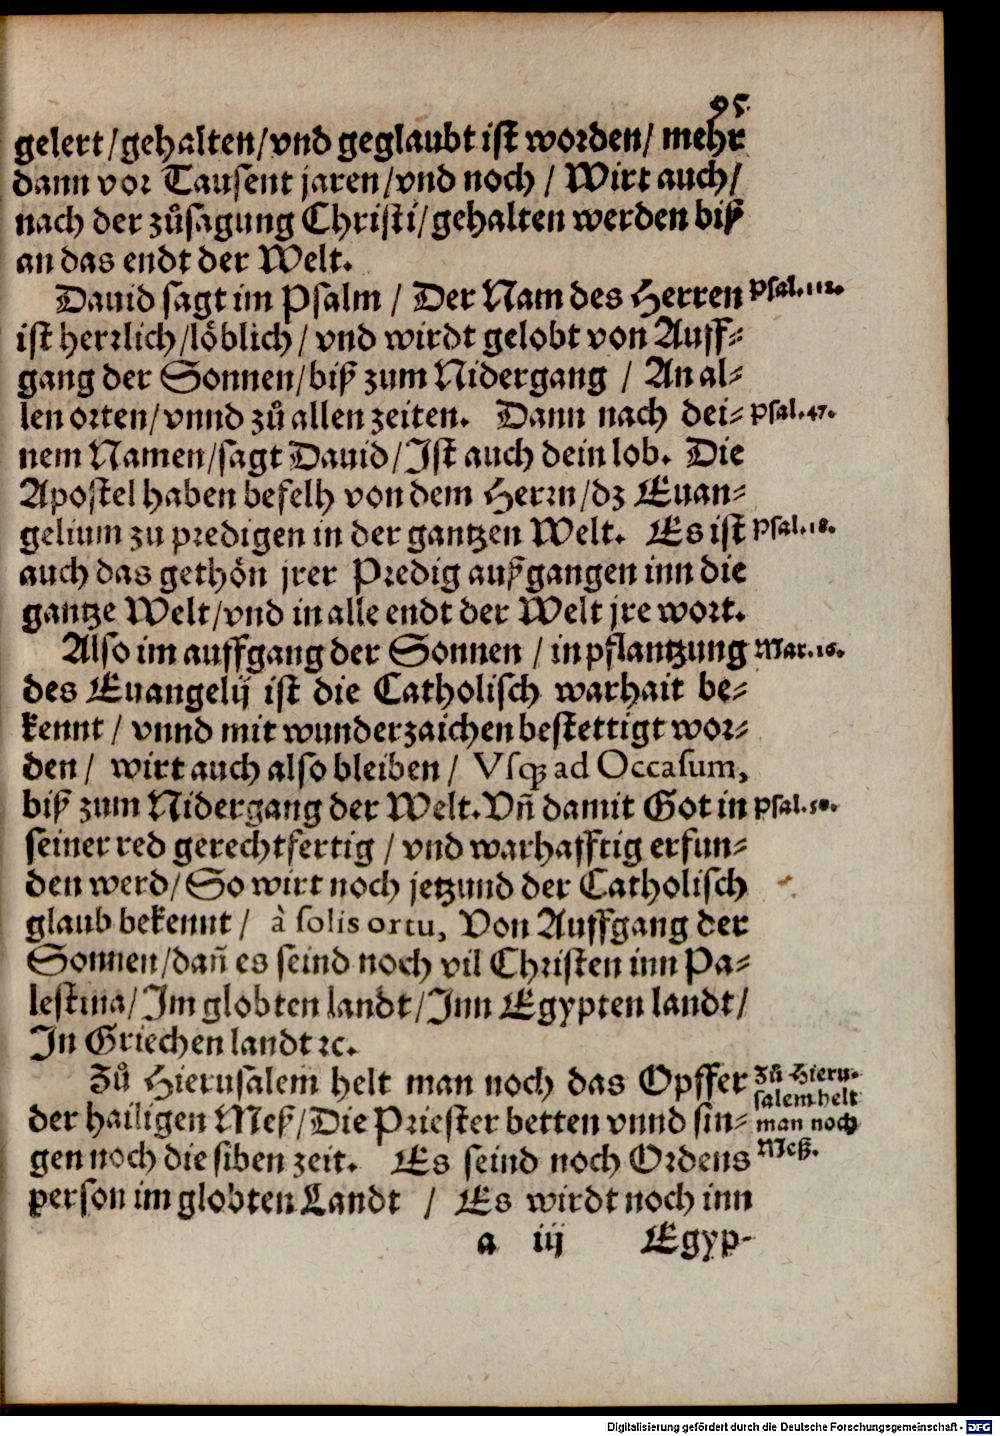 95.
gelert/gehalten/vnd geglaubt ist worden/ mehr
dann vor Tausent jaren/vnd noch / Wirt auch/
nach der zůsagung Christi/gehalten werden biß
an das endt der Welt.
Dauid sagt im Psalm / Der Nam des Herren
Psal.112.
ist herrlich/löblich/ vnd wirdt gelobt von Auff-
gang der Sonnen/biß zum Nidergang / An al-
len orten/vnnd zů allen zeiten. Dann nach dei-
Psal.47.
nem Namen/sagt Dauid/Ist auch dein lob. Die
Apostel haben befelh von dem Herrn/dz Euan-
gelium zu predigen in der gantzen Welt. Es ist
Psal.18.
auch das gethön jrer Predig außgangen inn die
gantze Welt/vnd in alle endt der Welt jre wort.
Also im auffgang der Sonnen / in pflantzung
Mar.16.
des Euangelij ist die Catholisch warhait be-
kennt / vnnd mit wunderzaichen bestettigt wor-
den/ wirt auch also bleiben/ Vsq; ad Occasum,
biß zum Nidergang der Welt. Vñ damit Got in
Psal.50.
seiner red gerechtfertig / vnd warhafftig erfun-
den werd/ So wirt noch jetzund der Catholisch
glaub bekennt/ à solis ortu, Von Auffgang der
Sonnen/dañ es seind noch vil Christen inn Pa-
lestina/Im globten landt/Inn Egypten landt/
In Griechen landt ꝛc.
Zů Hierusalem helt man noch das Opffer
der hailigen Meß/Die Priester betten vnnd sin-
gen noch die siben zeit. Es seind noch Ordens
person im globten Landt / Es wirdt noch inn
Zů Hieru-
salem helt
man noch
Meß.
a iij Egyp-
Digitalisierung gefördert durch die Deutsche Forschungsgemeinschaft - DFG